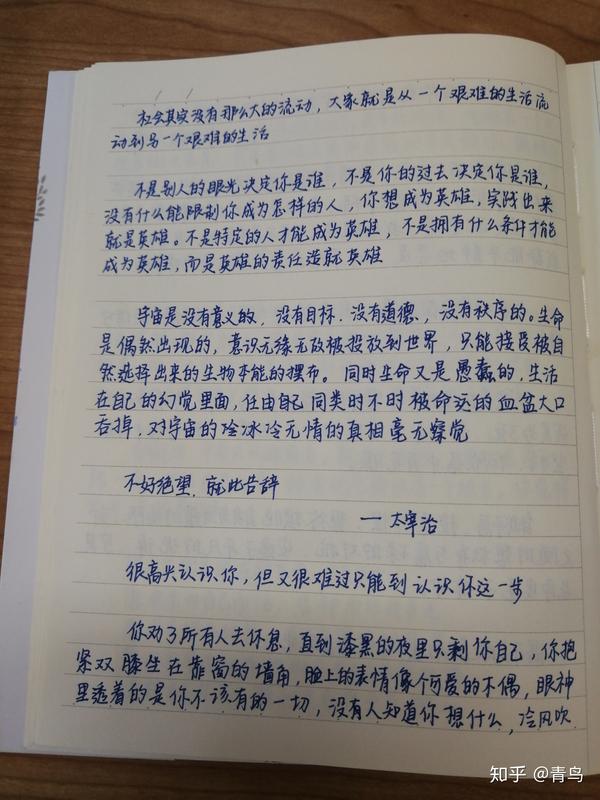 社会其实没有那么大的流动，大家就是从一个艰难的生活流
动到另一个艰难的生活
不是别人的眼光决定你是谁，不是你的过去决定你是谁，
没有什么能限制你成为怎样的人，你想成为英雄，实践出来
就是英雄。不是特定的人才能成为英雄，不是拥有什么条件才能
成为英雄，而是英雄的责任造就英雄
宇宙是没有意义的，没有目标，没有道德，没有秩序的。生命
是偶然出现的，意识无缘无故被投放到世界，只能接受被自
然选择出来的生物本能的摆布。同时生命又是愚蠢的，生活
在自己的幻觉里面，任由自己同类时不时被命运的血盆大口
吞掉，对宇宙的冷冰冷无情的真相毫无察觉
不好绝望，就此告辞
——太宰治
很高兴认识你，但又很难过只能到认识你这一步
你劝了所有人去休息，直到漆黑的夜里只剩你自己，你抱
紧双膝坐在靠窗的墙角，脸上的表情像个可爱的木偶，眼神
里透着的是你不该有的一切，没有人知道你想什么，冷风吹
知乎 @青鸟